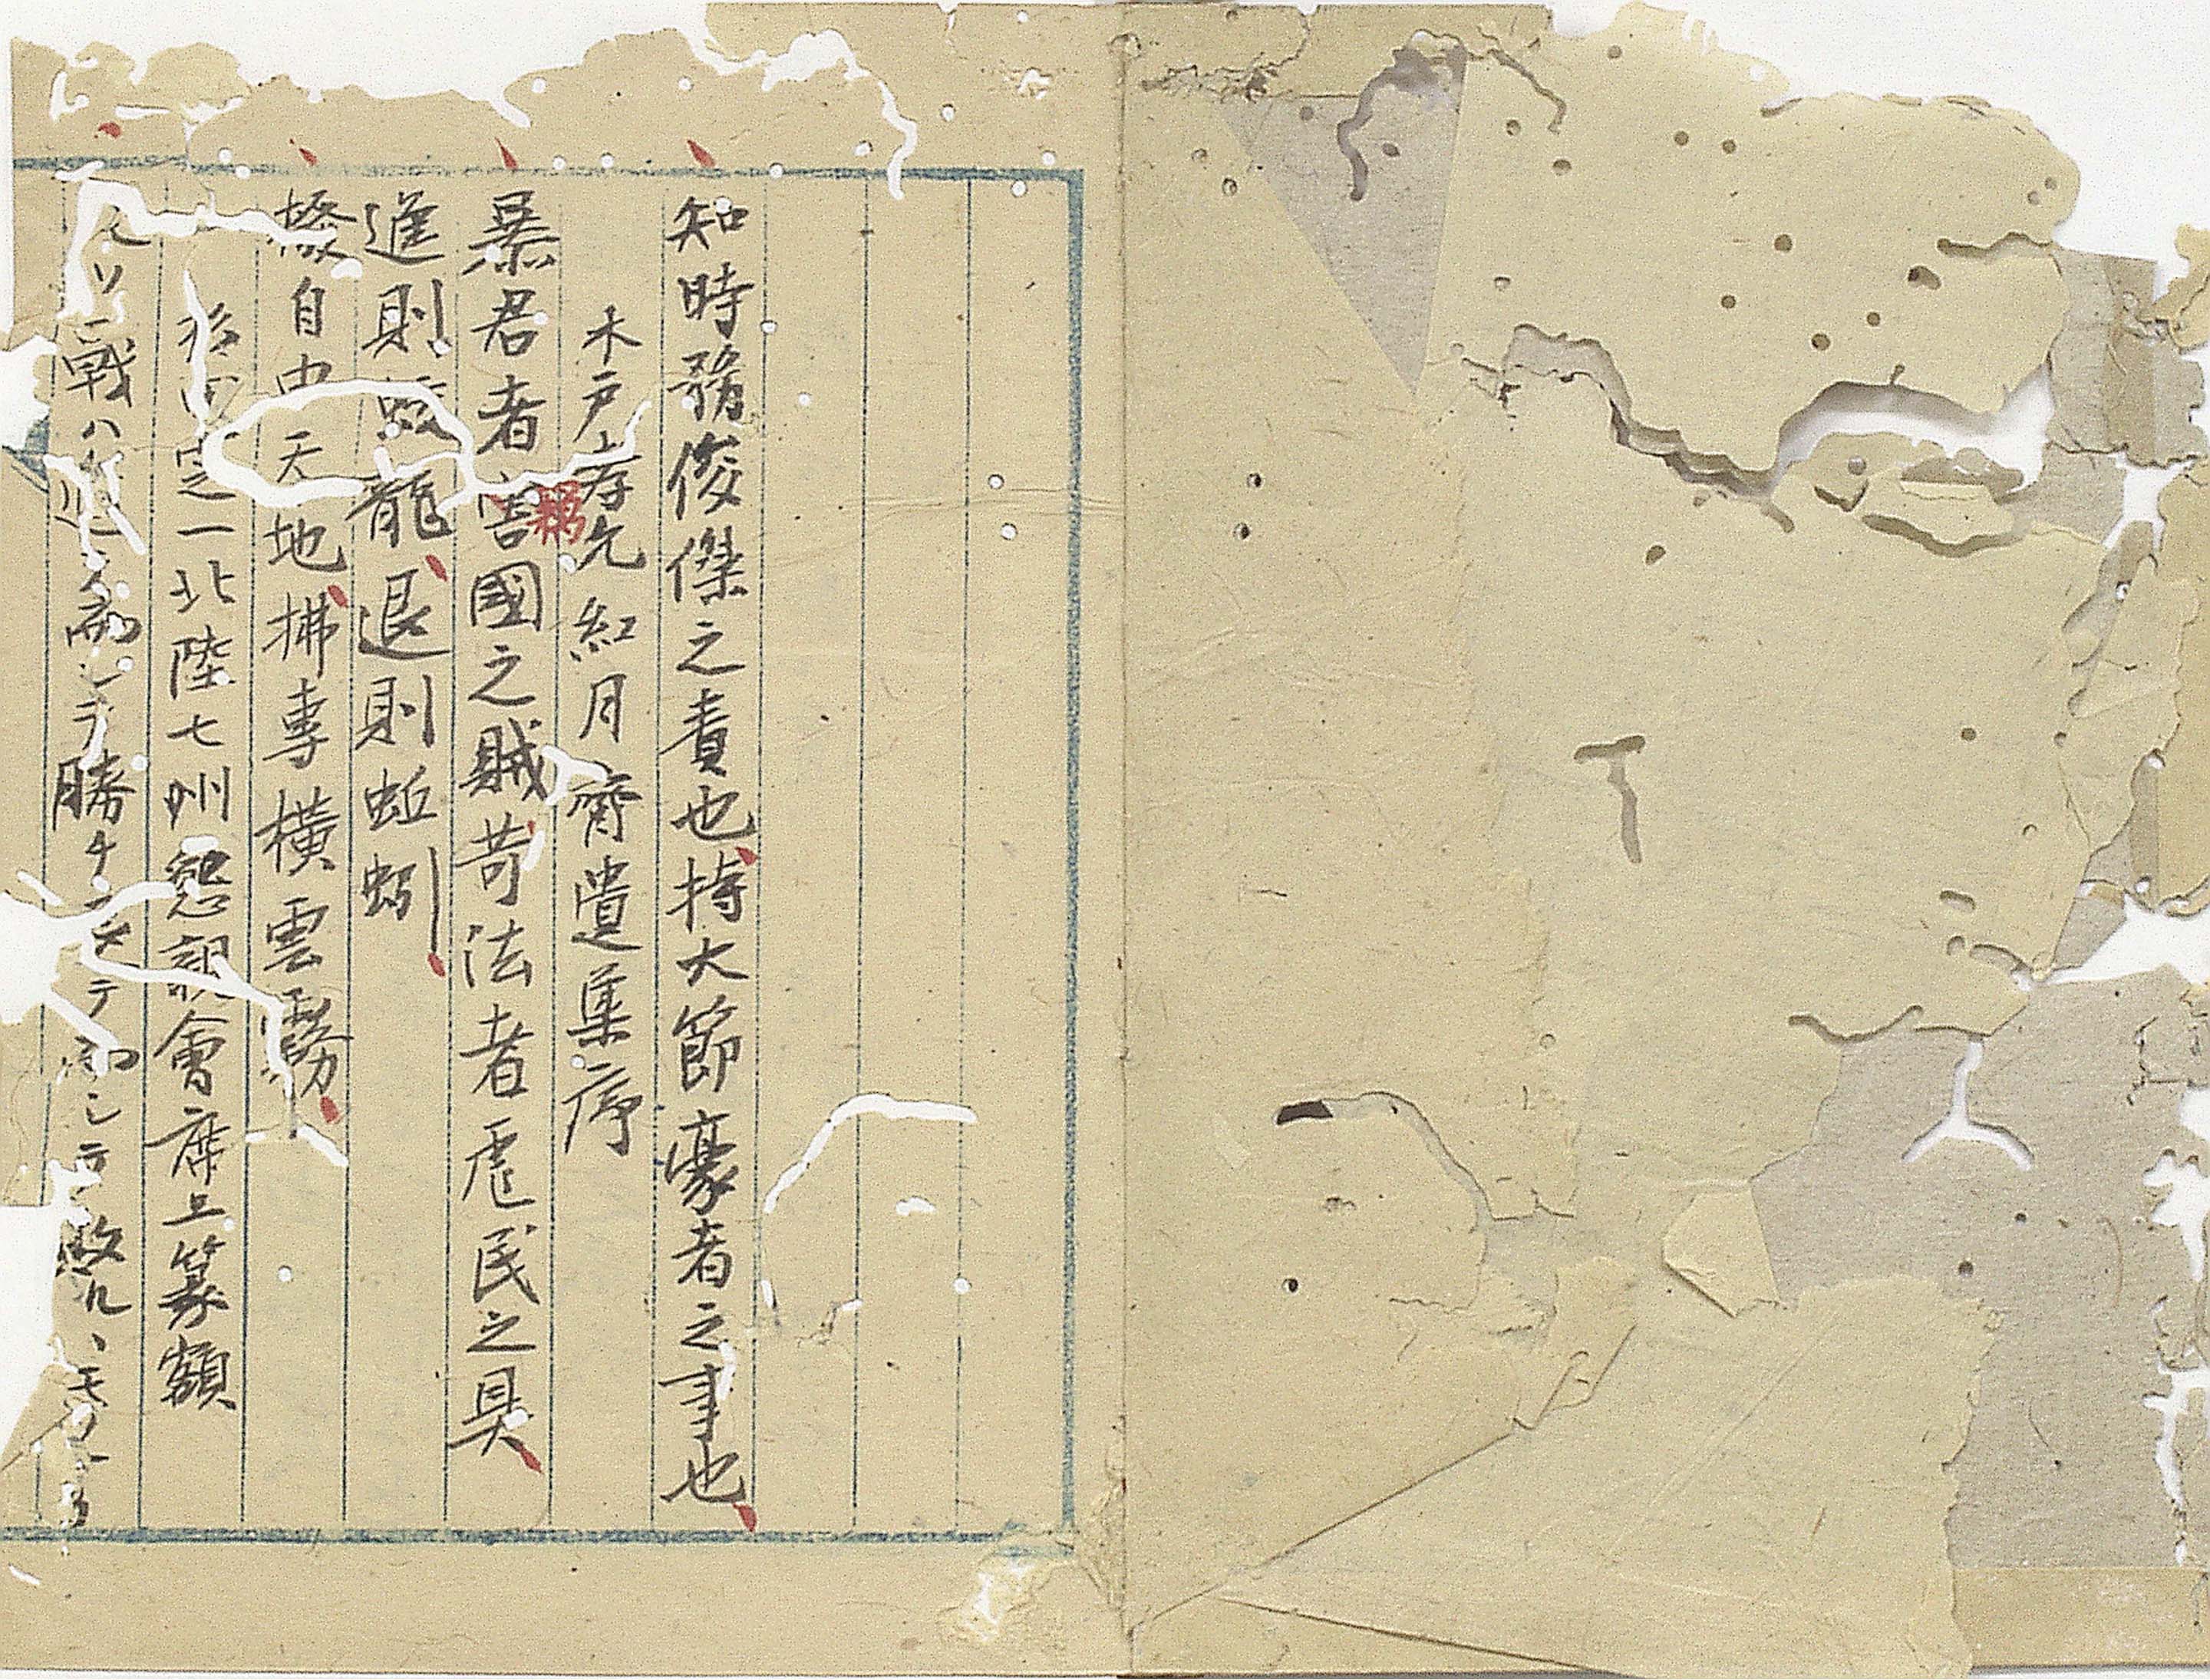 知時務俊傑之責也持大節豪者之事也
木戸孝允紅月齋遺集序
暴君者害國之賊苛法者虐民之具
進則蛟龍退則蚯蚓
撥自由天地拂専横雲霧
北陸七州懇親會席上篆額
戦ハ
勝チ
テ敗ル、モ